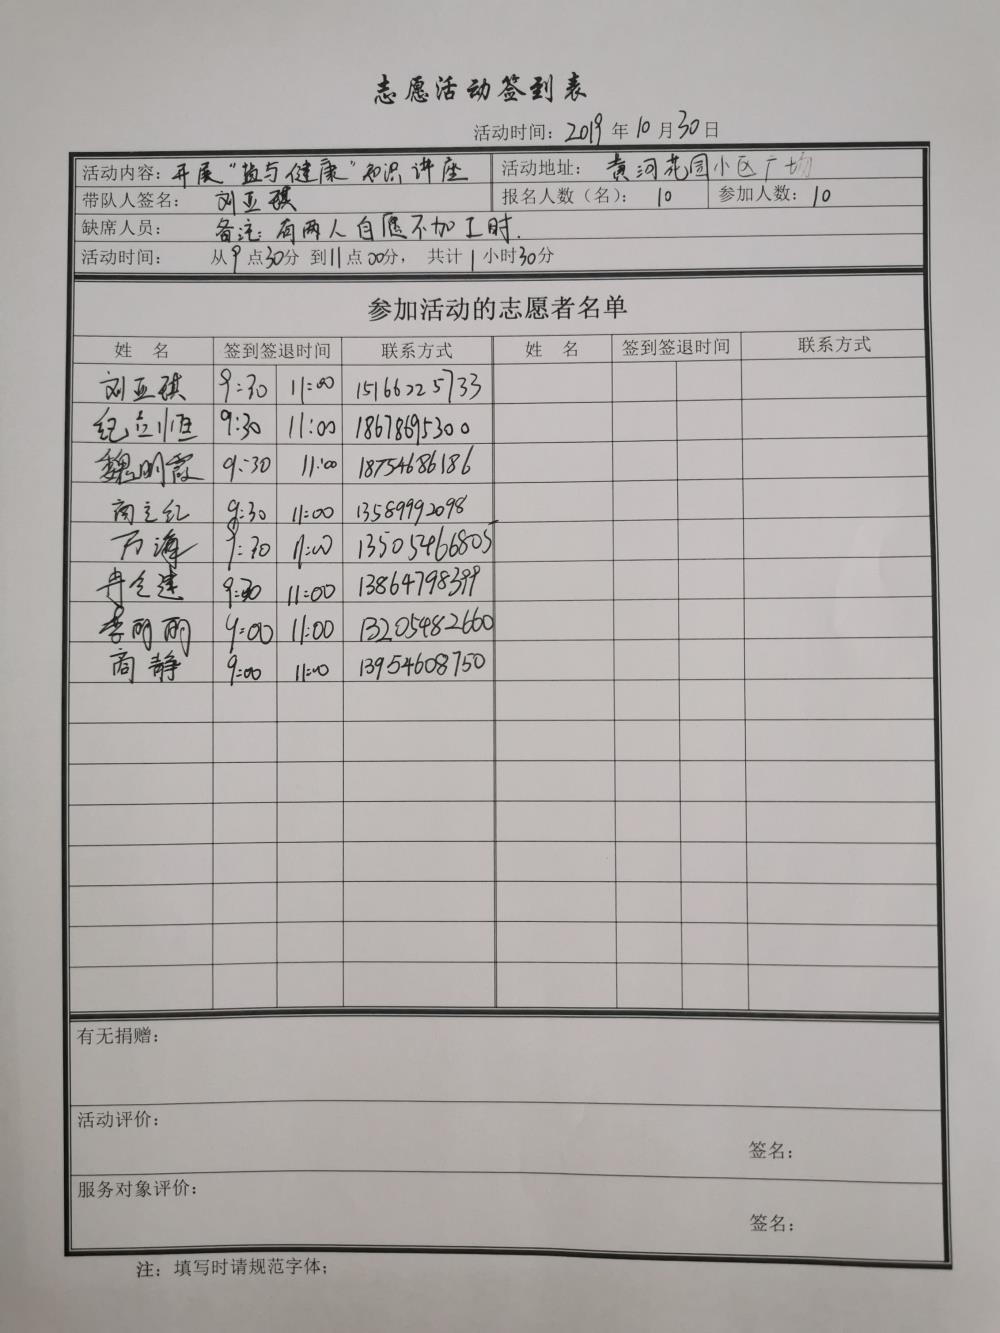 志愿活动签到表
活动时间：2019年10月30日
活动内容：开展“盐与健康”知识讲座 活动地址：黄河花园小区广场
带队人签名：刘亚琪 报名人数（名）：10 参加人数：10
缺席人员：备注：有两人自愿不加工时.
活动时间：从9点30分到11点00分，共计1小时30分
参加活动的志愿者名单
姓 名 签到签退时间 联系方式 姓 名 签到签退时间 联系方式
刘亚琪 9:30 11:00 15166225733
纪立恒 9:30 11:00 18678695300
魏明霞 9:30 11:00 18754686186
商立红 9:30 11:00 13589992098
万海 9:30 11:00 13505466805
9:30 11:00 13864798399
李丽丽 9:00 11:00 13205482660
商静 9:00 11:00 13954608750
有无捐赠：
活动评价：
签名：
服务对象评价：
签名：
注：填写时请规范字体；